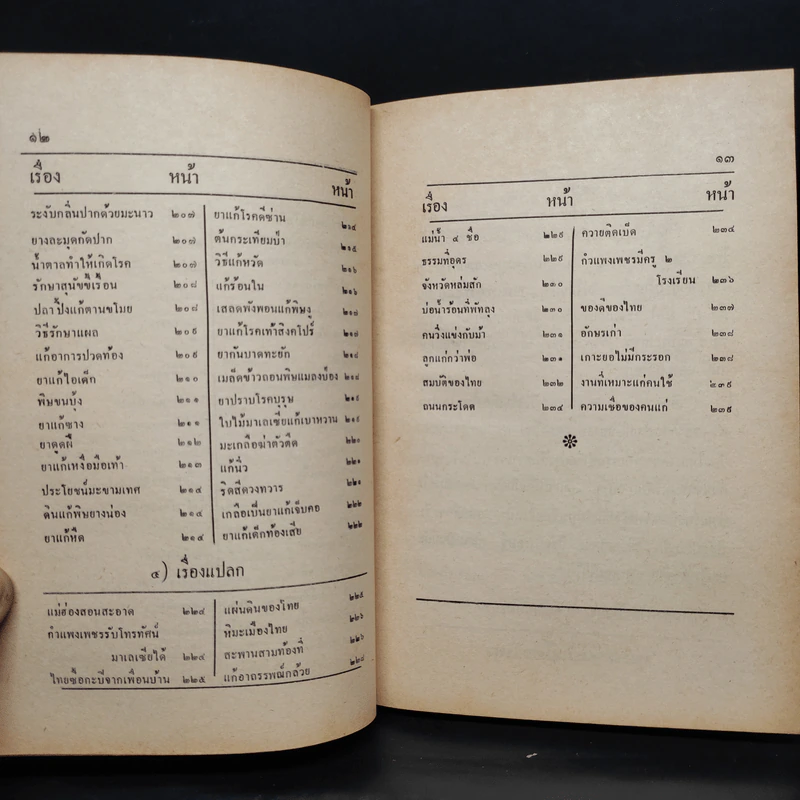 ๑๒
เรื่อง หน้า หน้า
ระงับกลิ่นปากด้วยมะนาว ๒๐๗
ยางละมุดกัดปาก ๒๐๗
น้ำตาลทำให้เกิดโรค ๒๐๗
รักษาสุนัขขี้เรื้อน ๒๐๘
ปลาปิ้งแก้ตานขโมย ๒๐๘
วิธีรักษาแผล ๒๐๙
แก้อาการปวดท้อง ๒๐๙
ยาแก้ไอเด็ก ๒๑๐
พิษขนบุ้ง ๒๑๑
ยาแก้ซาง ๒๑๑
ยาดูดฝี ๒๑๒
ยาแก้เหงื่อมือเท้า ๒๑๓
ประโยชน์มะขามเทศ ๒๑๔
ดินแก้พิษยางน่อง ๒๑๔
ยาแก้หืด ๒๑๔
ยาแก้โรคดีซ่าน ๒๑๔
ต้นกระเทียมป่า ๒๑๕
วิธีแก้หวัด ๒๑๖
แก้ร้อนใน ๒๑๖
เสลดพังพอนแก้พิษงู ๒๑๗
ยาแก้โรคเท้าสิงคโปร์ ๒๑๗
ยากันบาดทะยัก ๒๑๘
เมล็ดข้าวถอนพิษแมลงป่อง ๒๑๘
ยาปราบโรคบุรุษ ๒๑๙
ใบไม้มาเลเซียแก้เบาหวาน ๒๑๙
มะเกลือฆ่าตัวตืด ๒๒๐
แก้นิ่ว ๒๒๑
ริดสีดวงทวาร ๒๒๑
เกลือเป็นยาแก้เจ็บคอ ๒๒๒
ยาแก้เด็กท้องเสีย ๒๒๒
๕) เรื่องแปลก
แม่ฮ่องสอนสะอาด ๒๒๔
กำแพงเพชรรับโทรทัศน์
มาเลเซียได้ ๒๒๔
ไทยซื้อกะปิจากเพื่อนบ้าน ๒๒๕
แผ่นดินของไทย ๒๒๕
หิมะเมืองไทย ๒๒๖
สะพานสามท้องที่ ๒๒๖
แก้อาถรรพณ์กล้วย ๒๒๘
๑๓
เรื่อง หน้า หน้า
แม่น้ำ ๔ ชื่อ ๒๒๙
ธรรมที่อุดร ๒๒๙
จังหวัดหล่มสัก ๒๓๐
บ่อน้ำร้อนที่พัทลุง ๒๓๐
คนวิ่งแข่งกับม้า ๒๓๑
ลูกแก่กว่าพ่อ ๒๓๑
สมบัติของไทย ๒๓๒
ถนนกระโดด ๒๓๔
ควายติดเบ็ด ๒๓๔
กำแพงเพชรมีครู ๒
โรงเรียน ๒๓๖
ของดีของไทย ๒๓๗
อักษรเก่า ๒๓๘
เกาะยอไม่มีกระรอก ๒๓๘
งานที่เหมาะแก่คนใช้ ๒๓๙
ความเชื่อของคนแก่ ๒๓๙